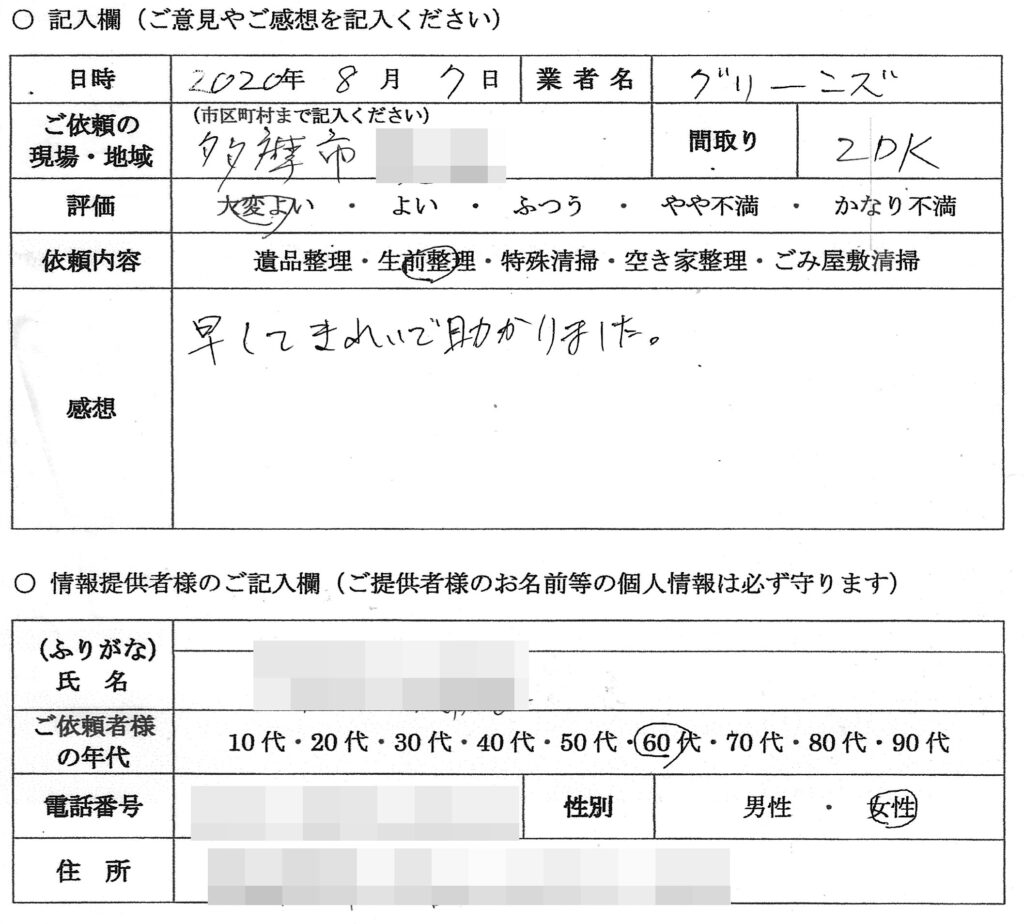 ○ 記入欄（ご意見やご感想を記入ください）
日時 2020年 8月 7日 業者名 グリーンズ
ご依頼の現場・地域 （市区町村まで記入ください） 多摩市 間取り 2DK
評価 大変よい ・ よい ・ ふつう ・ やや不満 ・ かなり不満
依頼内容 遺品整理・生前整理・特殊清掃・空き家整理・ごみ屋敷清掃
感想 早してきれいで助かりました。
○ 情報提供者様のご記入欄（ご提供者様のお名前等の個人情報は必ず守ります）
（ふりがな）
氏 名
ご依頼者様の年代 10代・20代・30代・40代・50代・60代・70代・80代・90代
電話番号 性別 男性 ・ 女性
住 所